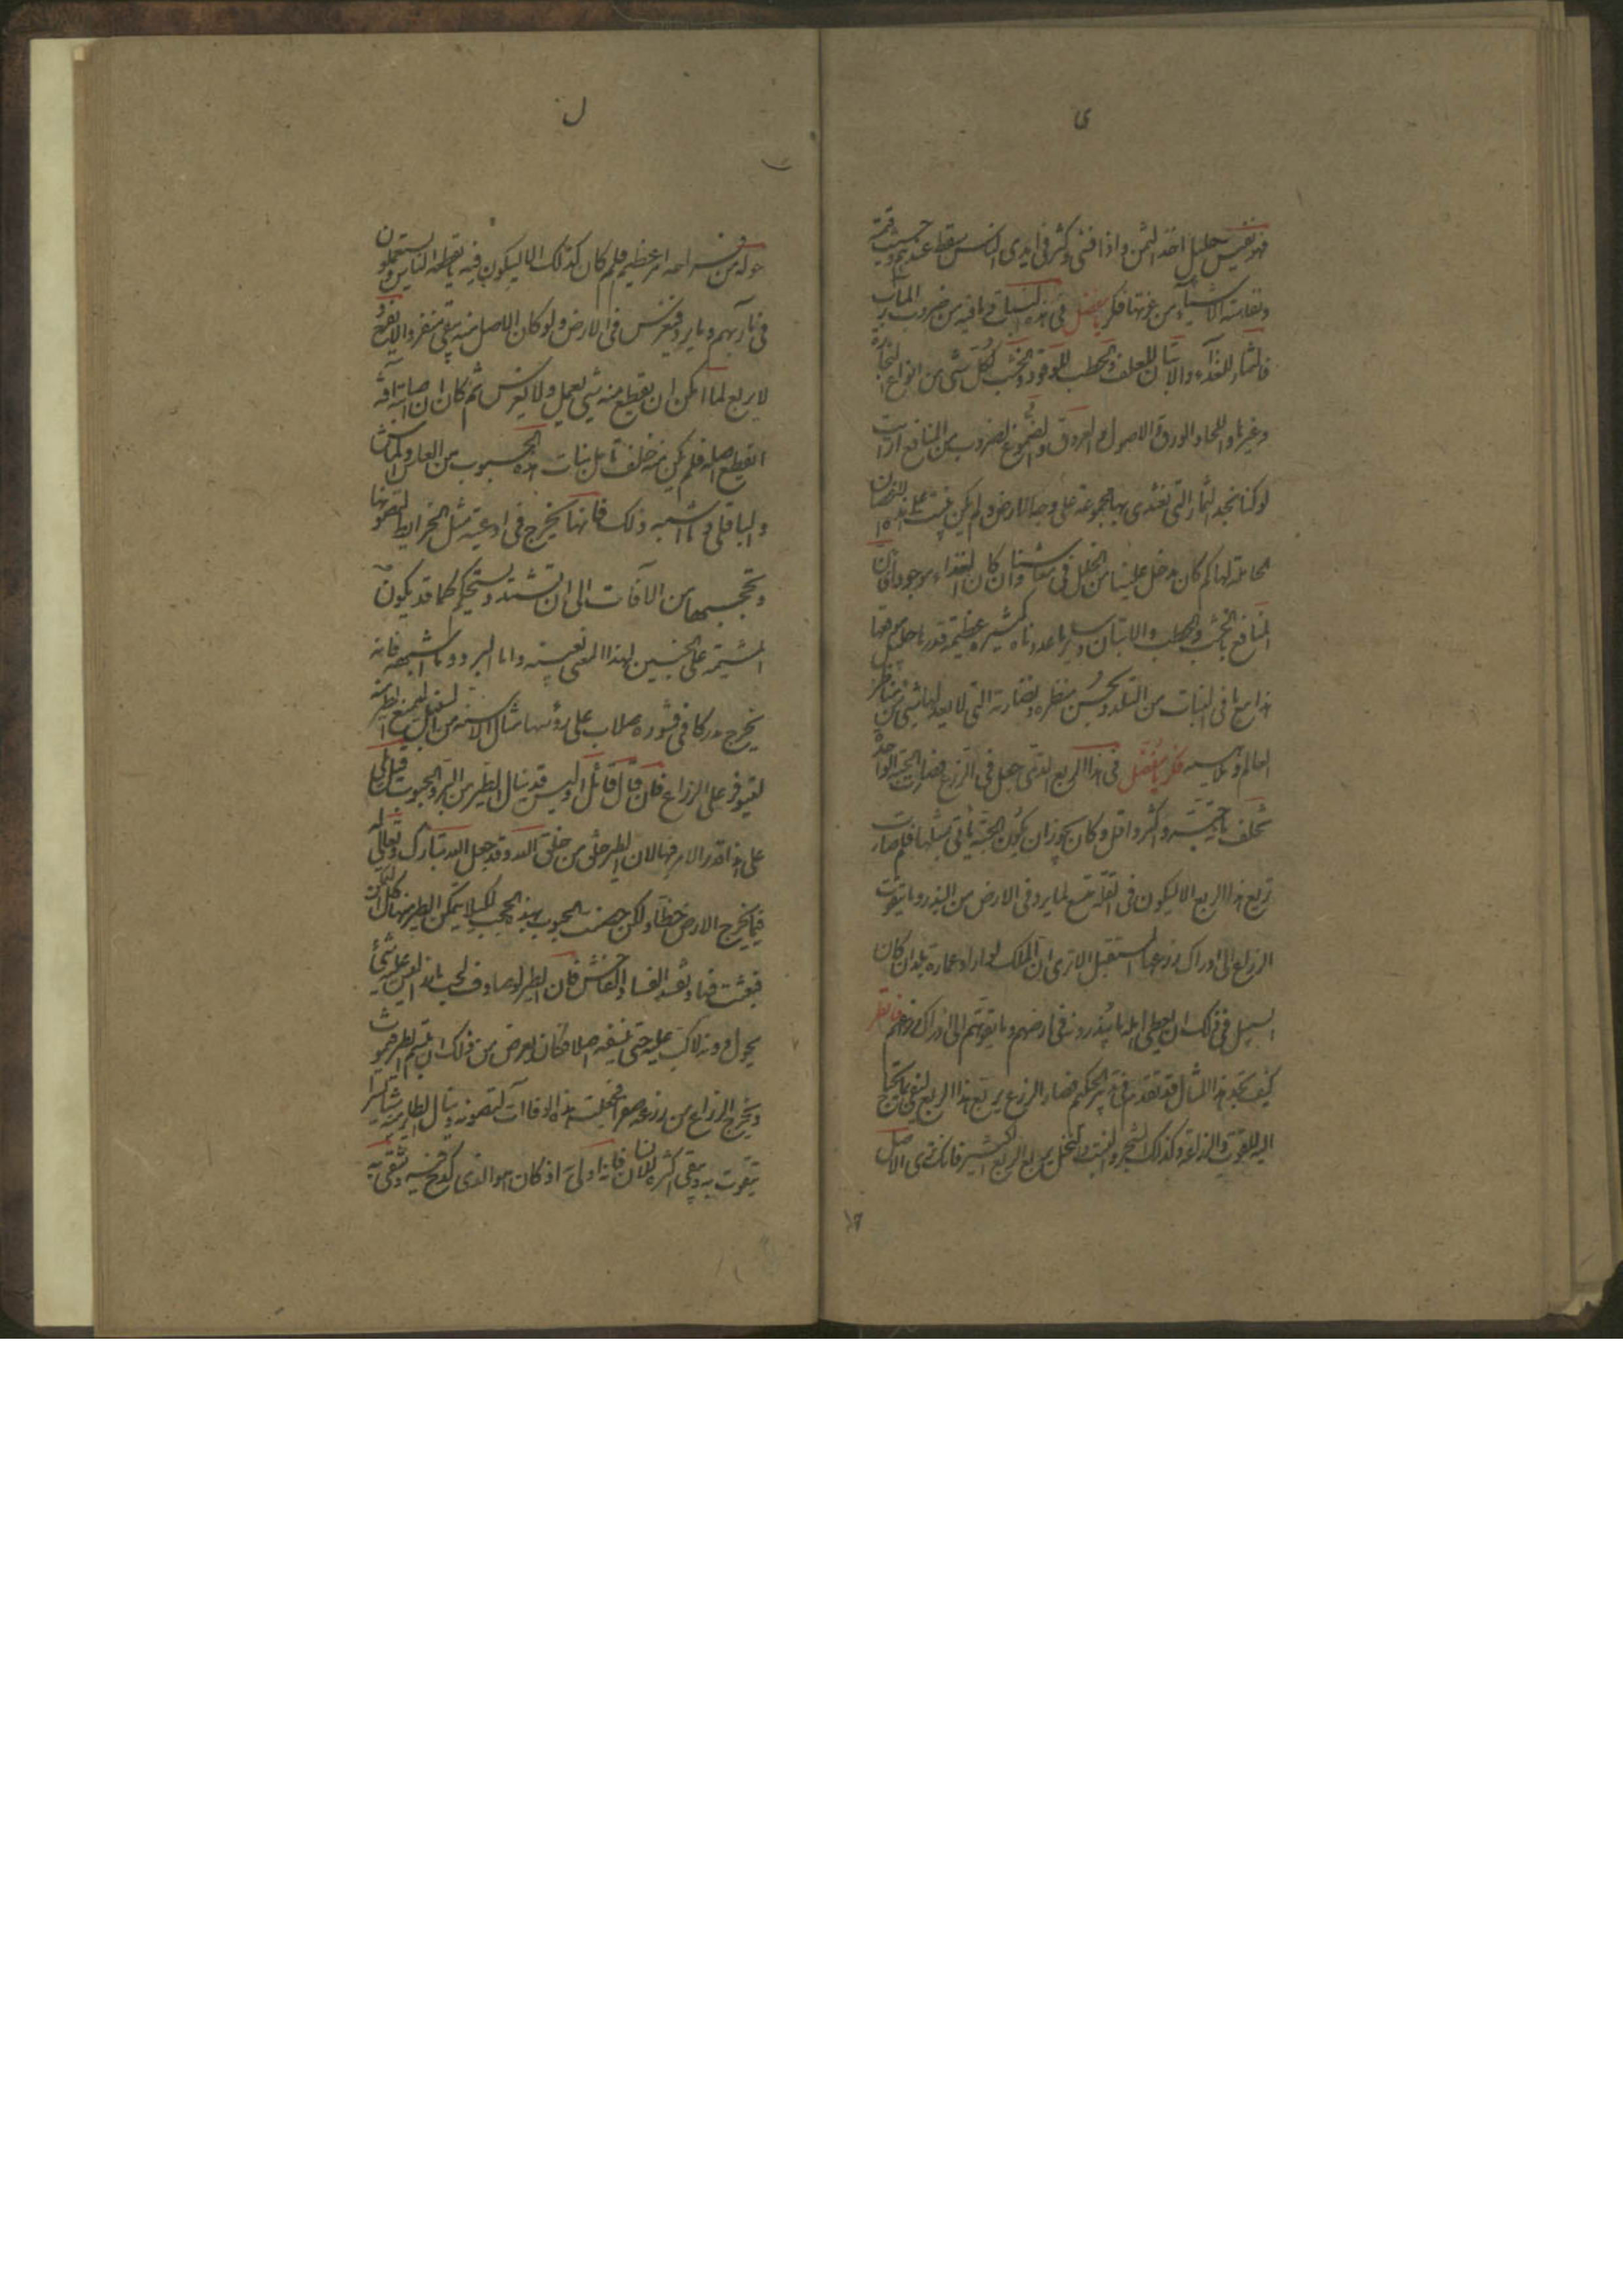 ى
فهو نفيس جليل اخذ الثمن واذا فشى وكثر فى ايدى الناس سقط عندهم وخست قيمته
ونفاسة الاشياء من عزتها فكر يا مفضل فى هذه النبات وما فيه من ضروب المآرب
فالثمار للغذاء والاتبان للعلف والحطب للوقود والخشب لكل شى من انواع النجارة
وغيرها واللحاء والورق والاصول والعروق والصموغ لضروب من المنافع ارايت
لو كنا نجد الثمار التى نغتذى بها مجموعة على وجه الارض ولم يكن تنبت على هذه الاغصان
الحاملة لها كم كان يدخل علينا من الخلل فى معاشنا وان كان الغذاء موجودا فان
المنافع بالخشب والحطب والاتبان وسائر ما عددناه كثيرة عظيمة قدرها جليل موقعها
هذا مع ما فى النبات من التلذذ بحسن منظره ونضارته التى لا يعدلها شئ من مناظر
العالم وملاهيه فكر يا مفضل فى هذا الريع الذى جعل فى الزرع فصارت الحبة الواحدة
تخلف مائة حبة واكثر واقل وكان يجوز ان يكون الحبة ياتى بمثلها فلم صارت
تريع هذا الريع الا ليكون فى الغلة متسع لما يرد فى الارض من البذر وما يتقوت
الزراع الى ادراك زرعها المستقبل الا ترى ان الملك لو اراد عمارة بلد كان
السبيل فى ذلك ان يعطى اهله ما يبذرونه فى ارضهم وما يقوتهم الى ادراك زرعهم فانظر
كيف تجد هذا المثال قد تقدم فى تدبير الحكيم فصار الزرع يريع هذا الريع ليفى بما يحتاج
اليه للقوت والزراعة وكذلك الشجر والنبت والنخل يريع الريع الكثير فانك ترى الاصل
ل
حوله من فراخه امر عظيم فلم كان كذلك الا ليكون فيه ما يقطعه الناس ويستعملون
فى مآربهم وما يرد فيغرس فى الارض ولو كان الاصل منه يبقى منفردا لا يفرخ و
لا يريع لما امكن ان يقطع منه شئ لعمل ولا لغرس ثم كان ان اصابته آفة
انقطع اصله فلم يكن منه خلف تامل نبات هذه الحبوب من العدس والماش
والباقلى وما اشبه ذلك فانها يخرج فى اوعية مثل الخرايط لتصونها
وتحجبها من الآفات الى ان تشتد وتستحكم كما قد يكون
المشيمة على الجنين لهذا المعنى بعينه واما البر وما اشبهه فانه
يخرج مدركا فى قشوره صلاب على رؤسها امثال الاسنة من السنبل ليمنع الطير منه
ليتوفر على الزراع فان قال قائل اوليس قد ينال الطير من البر والحبوب قيل له بلى
على هذا قدر الامر فيها لان الطير خلق من خلق الله وقد جعل الله تبارك وتعالى له
فيما يخرج الارض حظا ولكن حصنت الحبوب بهذه الحجب لكيلا يتمكن الطير منها كل التمكن
فيعبث فيها ويفسد الفساد الفاحش فان الطير لو صادف الحب بارزا ليس عليه شئ
يحول دونه لاكب عليه حتى ينسفه اصلا فكان يعرض من ذلك ان يبشم الطير فيموت
ويخرج الزراع من زرعه صفرا فجعلت هذه الوقاات لتصونه فينال الطاير منه شيئا يسيرا
يتقوت به ويبقى اكثره للانسان فانه اولى به اذ كان هو الذى كدح فيه وشقى به